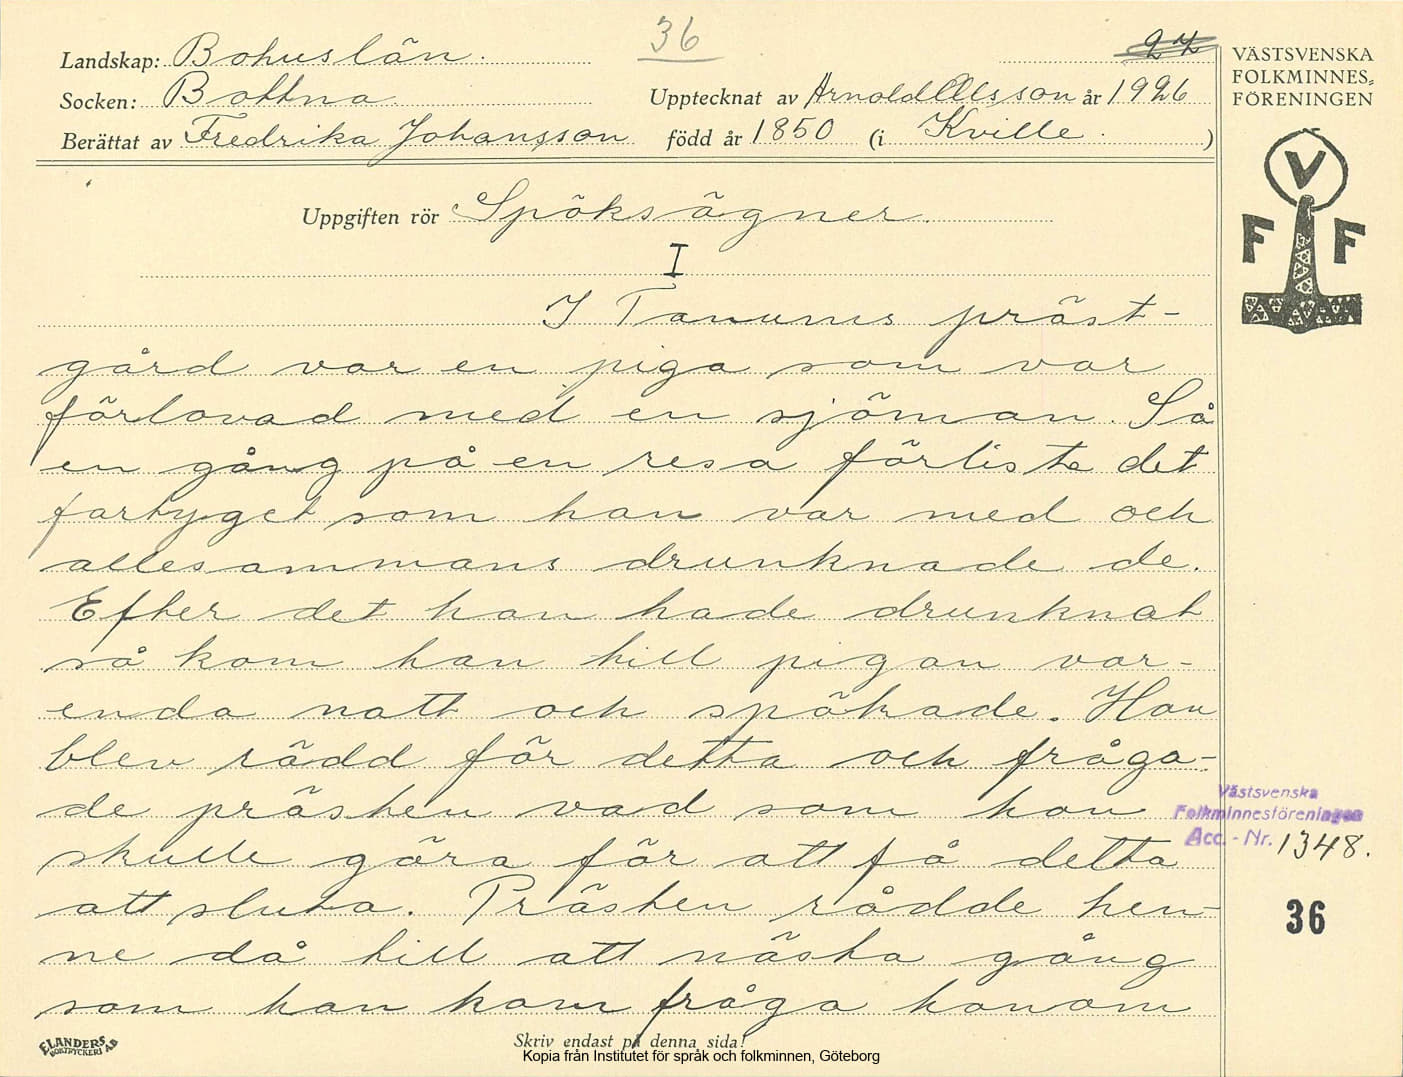 36
27
Landskap: Bohuslän.
Socken: Bottna
Upptecknat av Arnold Olsson år 1926
Berättat av Fredrika Johansson född år 1850 (i Kville.)
VÄSTSVENSKA
FOLKMINNES-
FÖRENINGEN
V
F F
Uppgiften rör Spöksägner.
I
I Tanums präst-
gård var en piga som var
förlovad med en sjöman. Så
en gång på en resa förliste det
fartyget som han var med och
allesammans drunknade de.
Efter det han hade drunknat
så kom han till pigan var-
enda natt och spökade. Hon
blev rädd för detta och fråga-
de prästen vad som hon
skulle göra för att få detta
att sluta. Prästen rådde hen-
ne då till att nästa gång
som han kom fråga honom
Västsvenska
Folkminnesföreningen
Acc.-Nr. 1348.
36
ELANDERS
BOKTRYCKERI AB
Skriv endast på denna sida!
Kopia från Institutet för språk och folkminnen, Göteborg